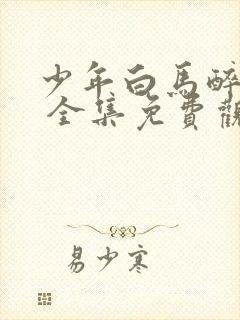 少年白馬醉
全集免費觀
易少寒